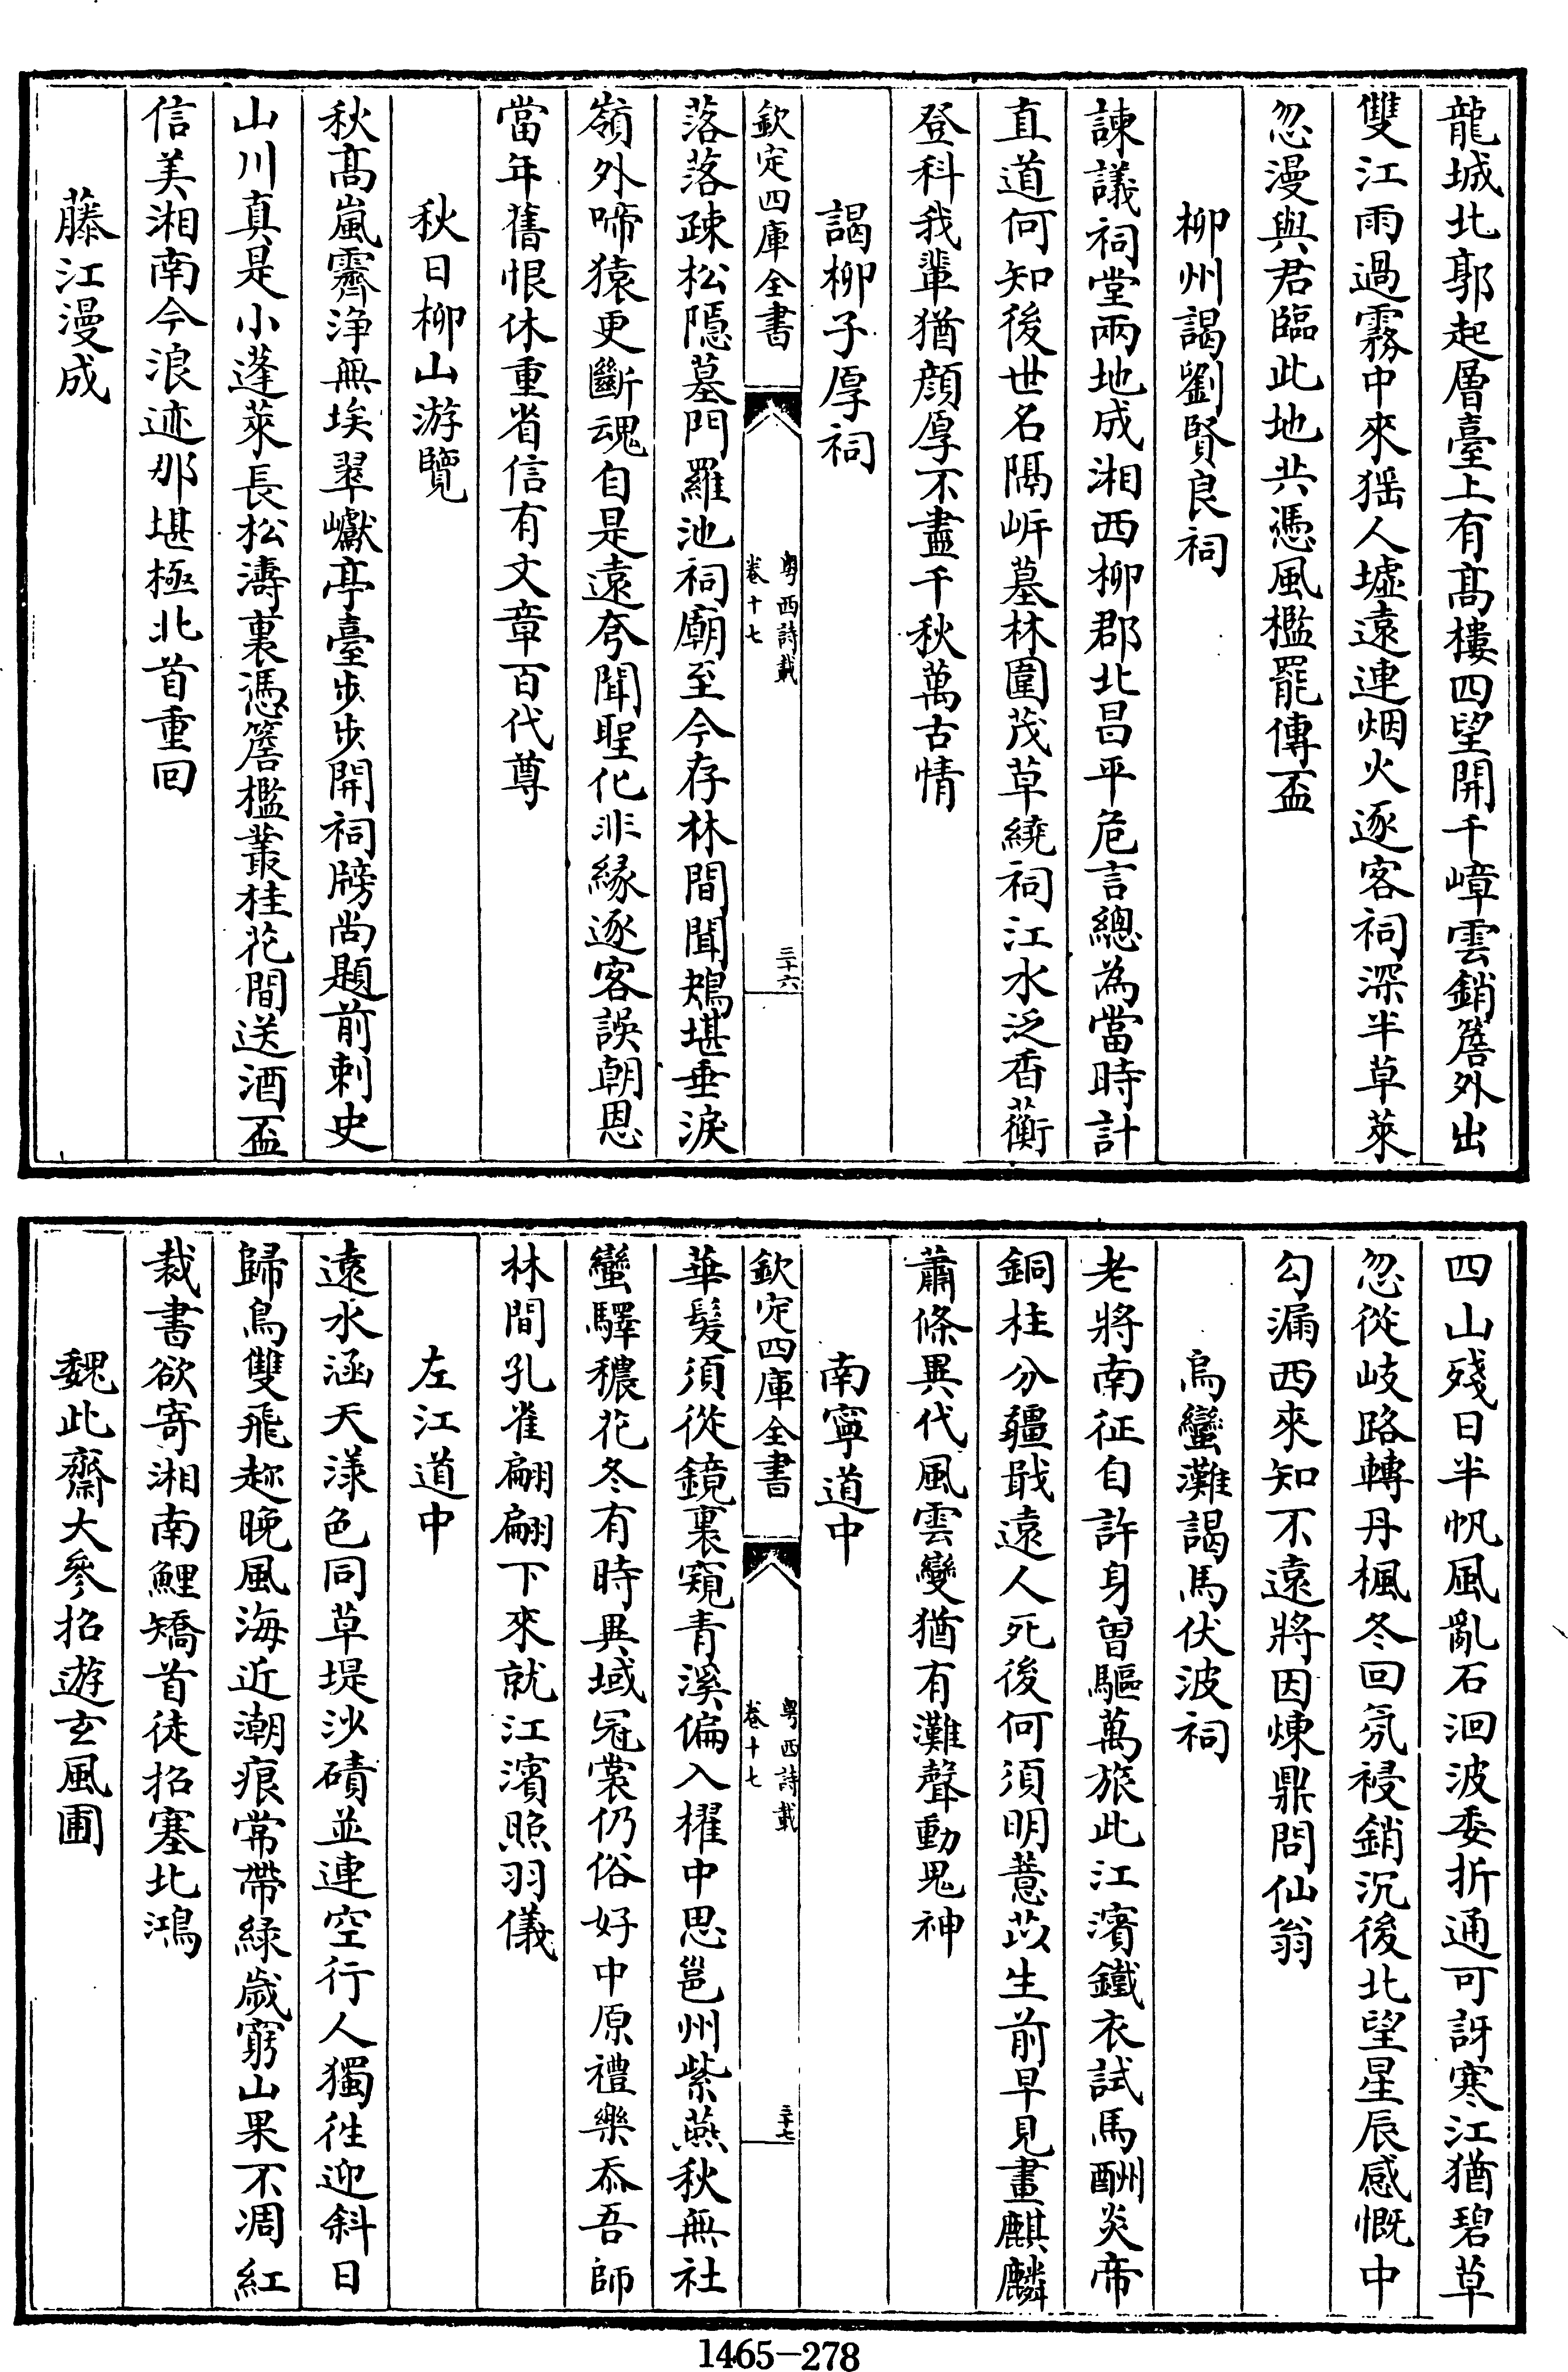 龍城北郭起層臺上有髙樓四望開千嶂雲銷簷外出
雙江雨過霧中來猺人墟遠連烟火逐客祠深半草萊
忽漫與君臨此地共憑風檻罷傳盃
柳州謁劉賢良祠
諫議祠堂兩地成湘西柳郡北昌平危言總為當時計
直道何知後世名隔岍墓林圍茂草繞祠江水泛香蘅
登科我輩猶顔厚不盡千秋萬古情
謁柳子厚祠
欽定四庫全書
粤西詩載
卷十七
三十六
落落疎松隱墓門羅池祠廟至今存林間聞鴂堪垂淚
嶺外啼猿更斷魂自是遠夸聞聖化非緣逐客誤朝恩
當年舊恨休重省信有文章百代尊
秋日柳山游覽
秋髙嵐霽浄無埃翠巘亭臺步步開祠牓尚題前刺史
山川真是小蓬萊長松濤裏憑簷檻叢桂花間送酒盃
信美湘南今浪迹那堪極北首重回
藤江漫成
四山殘日半帆風亂石洄波委折通可訝寒江猶碧草
忽從岐路轉丹楓冬回氛祲銷沉後北望星辰感慨中
勾漏西來知不遠將因煉鼎問仙翁
烏蠻灘謁馬伏波祠
老將南征自許身曽驅萬旅此江濱鐵衣試馬酬炎帝
銅柱分疆戢遠人死後何須明薏苡生前早見畫麒麟
蕭條異代風雲變猶有灘聲動鬼神
南寧道中
欽定四庫全書
粤西詩載
卷十七
三十七
華髪須從鏡裏窺青溪偏入櫂中思邕州紫燕秋無社
蠻驛穠花冬有時異域冠裳仍俗好中原禮樂忝吾師
林間孔雀翩翩下來就江濱照羽儀
左江道中
遠水涵天漾色同草堤沙磧並連空行人獨徃迎斜日
歸鳥雙飛趂晚風海近潮痕常帶緑歲窮山果不凋紅
裁書欲寄湘南鯉矯首徒招塞北鴻
魏此齋大參招遊玄風圃
1465-278